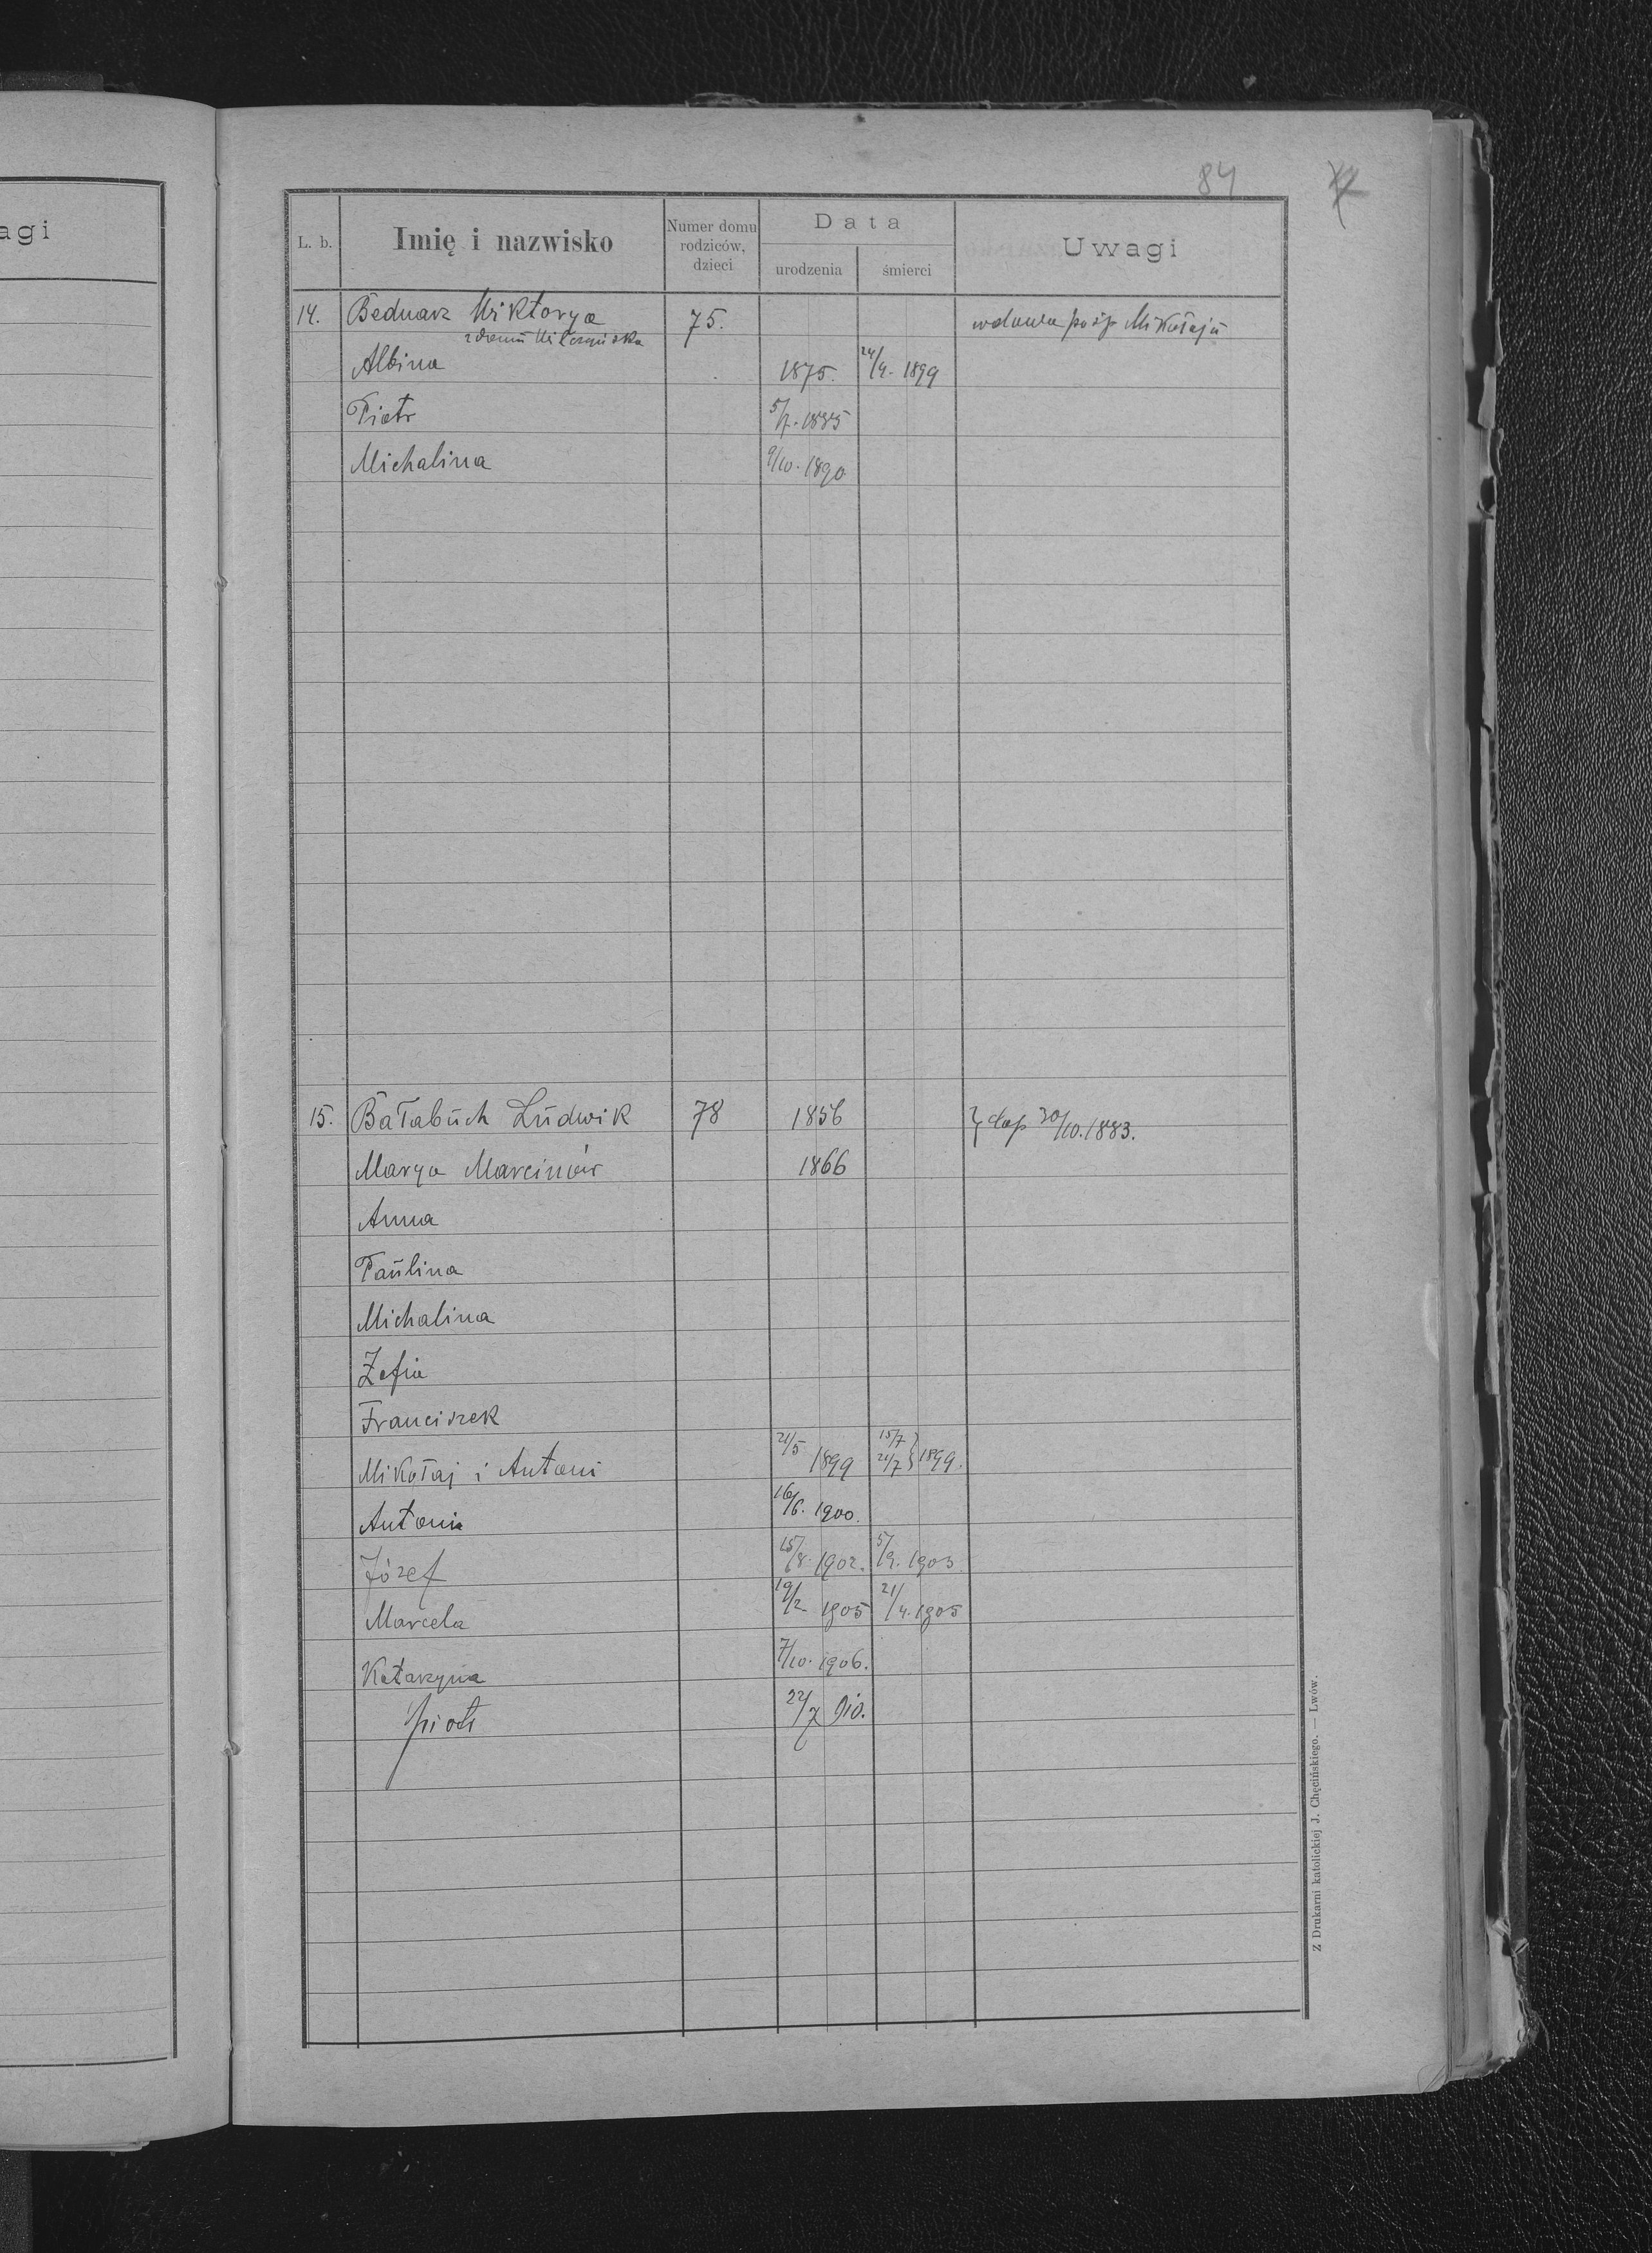 agi
84
L. b. Imię i nazwisko Numer domu rodziców, dzieci Data urodzenia śmierci Uwagi
14. Bednarz Wiktorya 75. wdowa po śp Mikołaju
z domu Wilczyńska
Albina 1875. 24/4. 1899
Piotr 5/7. 1885
Michalina 9/10. 1890
15. Bałabuch Ludwik 78 1856 } dap 30/10. 1883.
Marya Marciniów 1866
Anna
Paulina
Michalina
Zofia
Franciszek
Mikołaj i Antoni 21/5 1899 15/7 21/7 } 1899.
Antoni 16/6. 1900.
Józef 15/8. 1902. 5/9. 1903
Marcela 19/2 1905 21/4. 1905
Katarzyna 7/10. 1906.
Piotr 22/7 910.
Z Drukarni katolickiej J. Chęcińskiego. — Lwów.